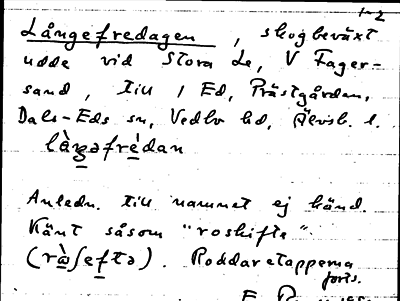 1-2
Långefredagen, skogbeväxt
udde vid Stora Le, V Fager-
sand, till 1 Ed, Prästgården,
Dals-Eds sn, Vedbo hd, Älvsb. l.
làŋəfrèdan
Anledn. till namnet ej känd.
Känt såsom "roskifte".
(rὰʃeftə). Roddaretapperna
forts.